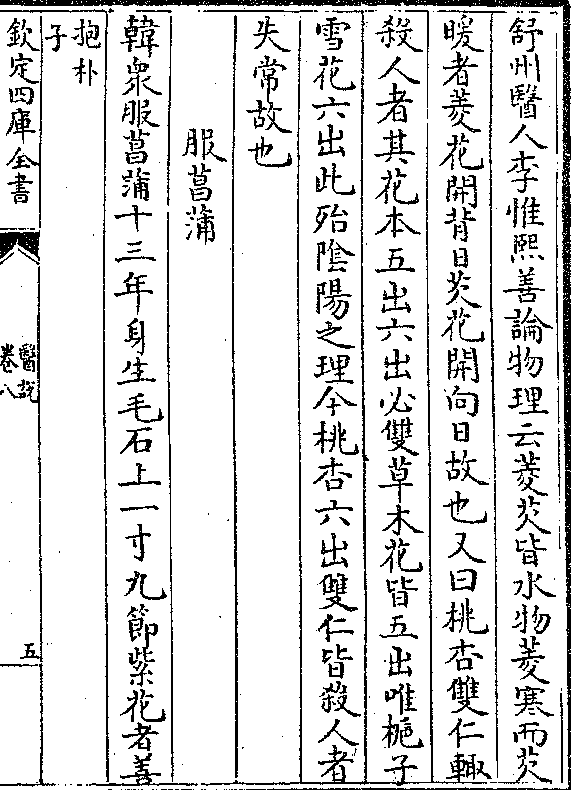 舒州醫人李惟熙善論物理云菱芡皆水物菱寒而芡
暖者菱花開背日芡花開向日故也又曰桃杏雙仁輙
殺人者其花本五出六出必雙草木花皆五出唯梔子
雪花六出此殆陰陽之理今桃杏六出雙仁皆殺人者
失常故也
服菖蒲
韓衆服菖蒲十三年身生毛石上一寸九節紫花者善
抱朴
子
欽定四庫全書
醫説
卷八
五